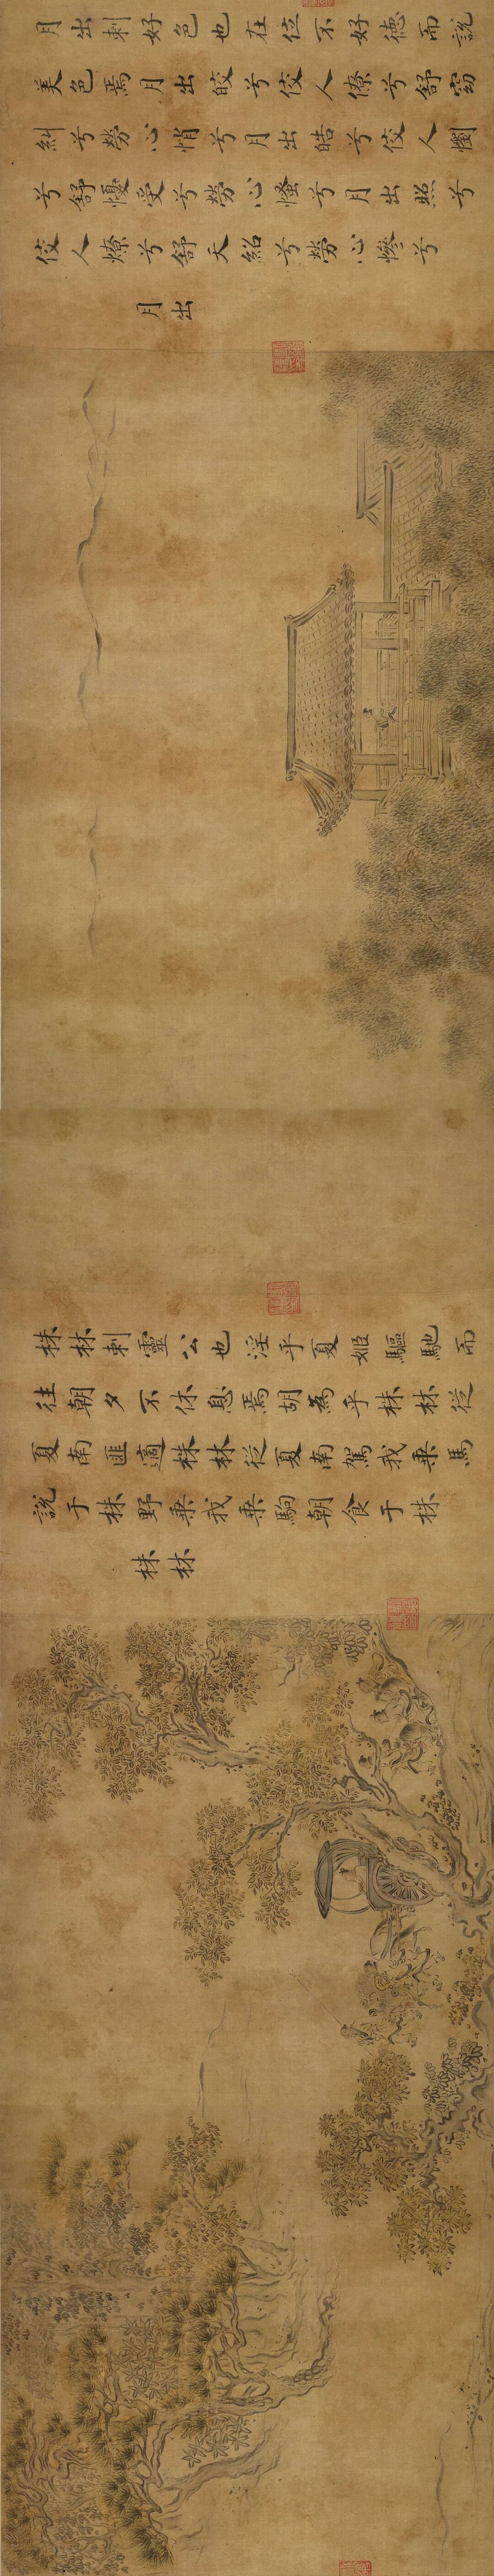 月出刺好色也在位不好德而說
美色焉月出皎兮佼人僚兮舒窈
糾兮勞心悄兮月出皓兮佼人懰
兮舒懮受兮勞心慅兮月出照兮
佼人燎兮舒夭紹兮勞心慘兮
月出
株林刺靈公也淫乎夏姬驅馳而
往朝夕不休息焉胡為乎株林從
夏南匪適株林從夏南駕我乘馬
說于株野乘我乘駒朝食于株
株林